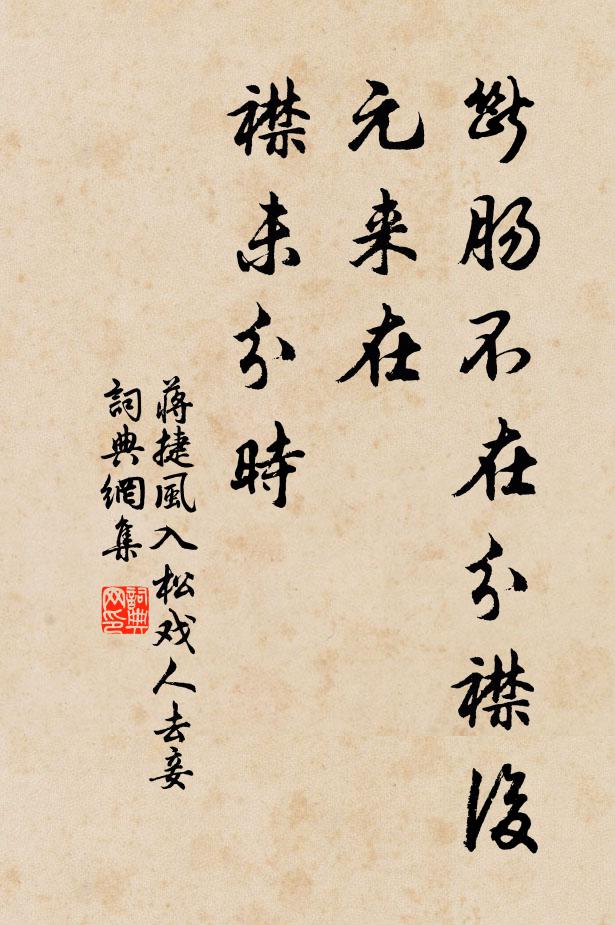 斷肠不在分襟後
元来在
襟未分時
蒋捷風入松戏人去妾
詞典網集
詞典
网印